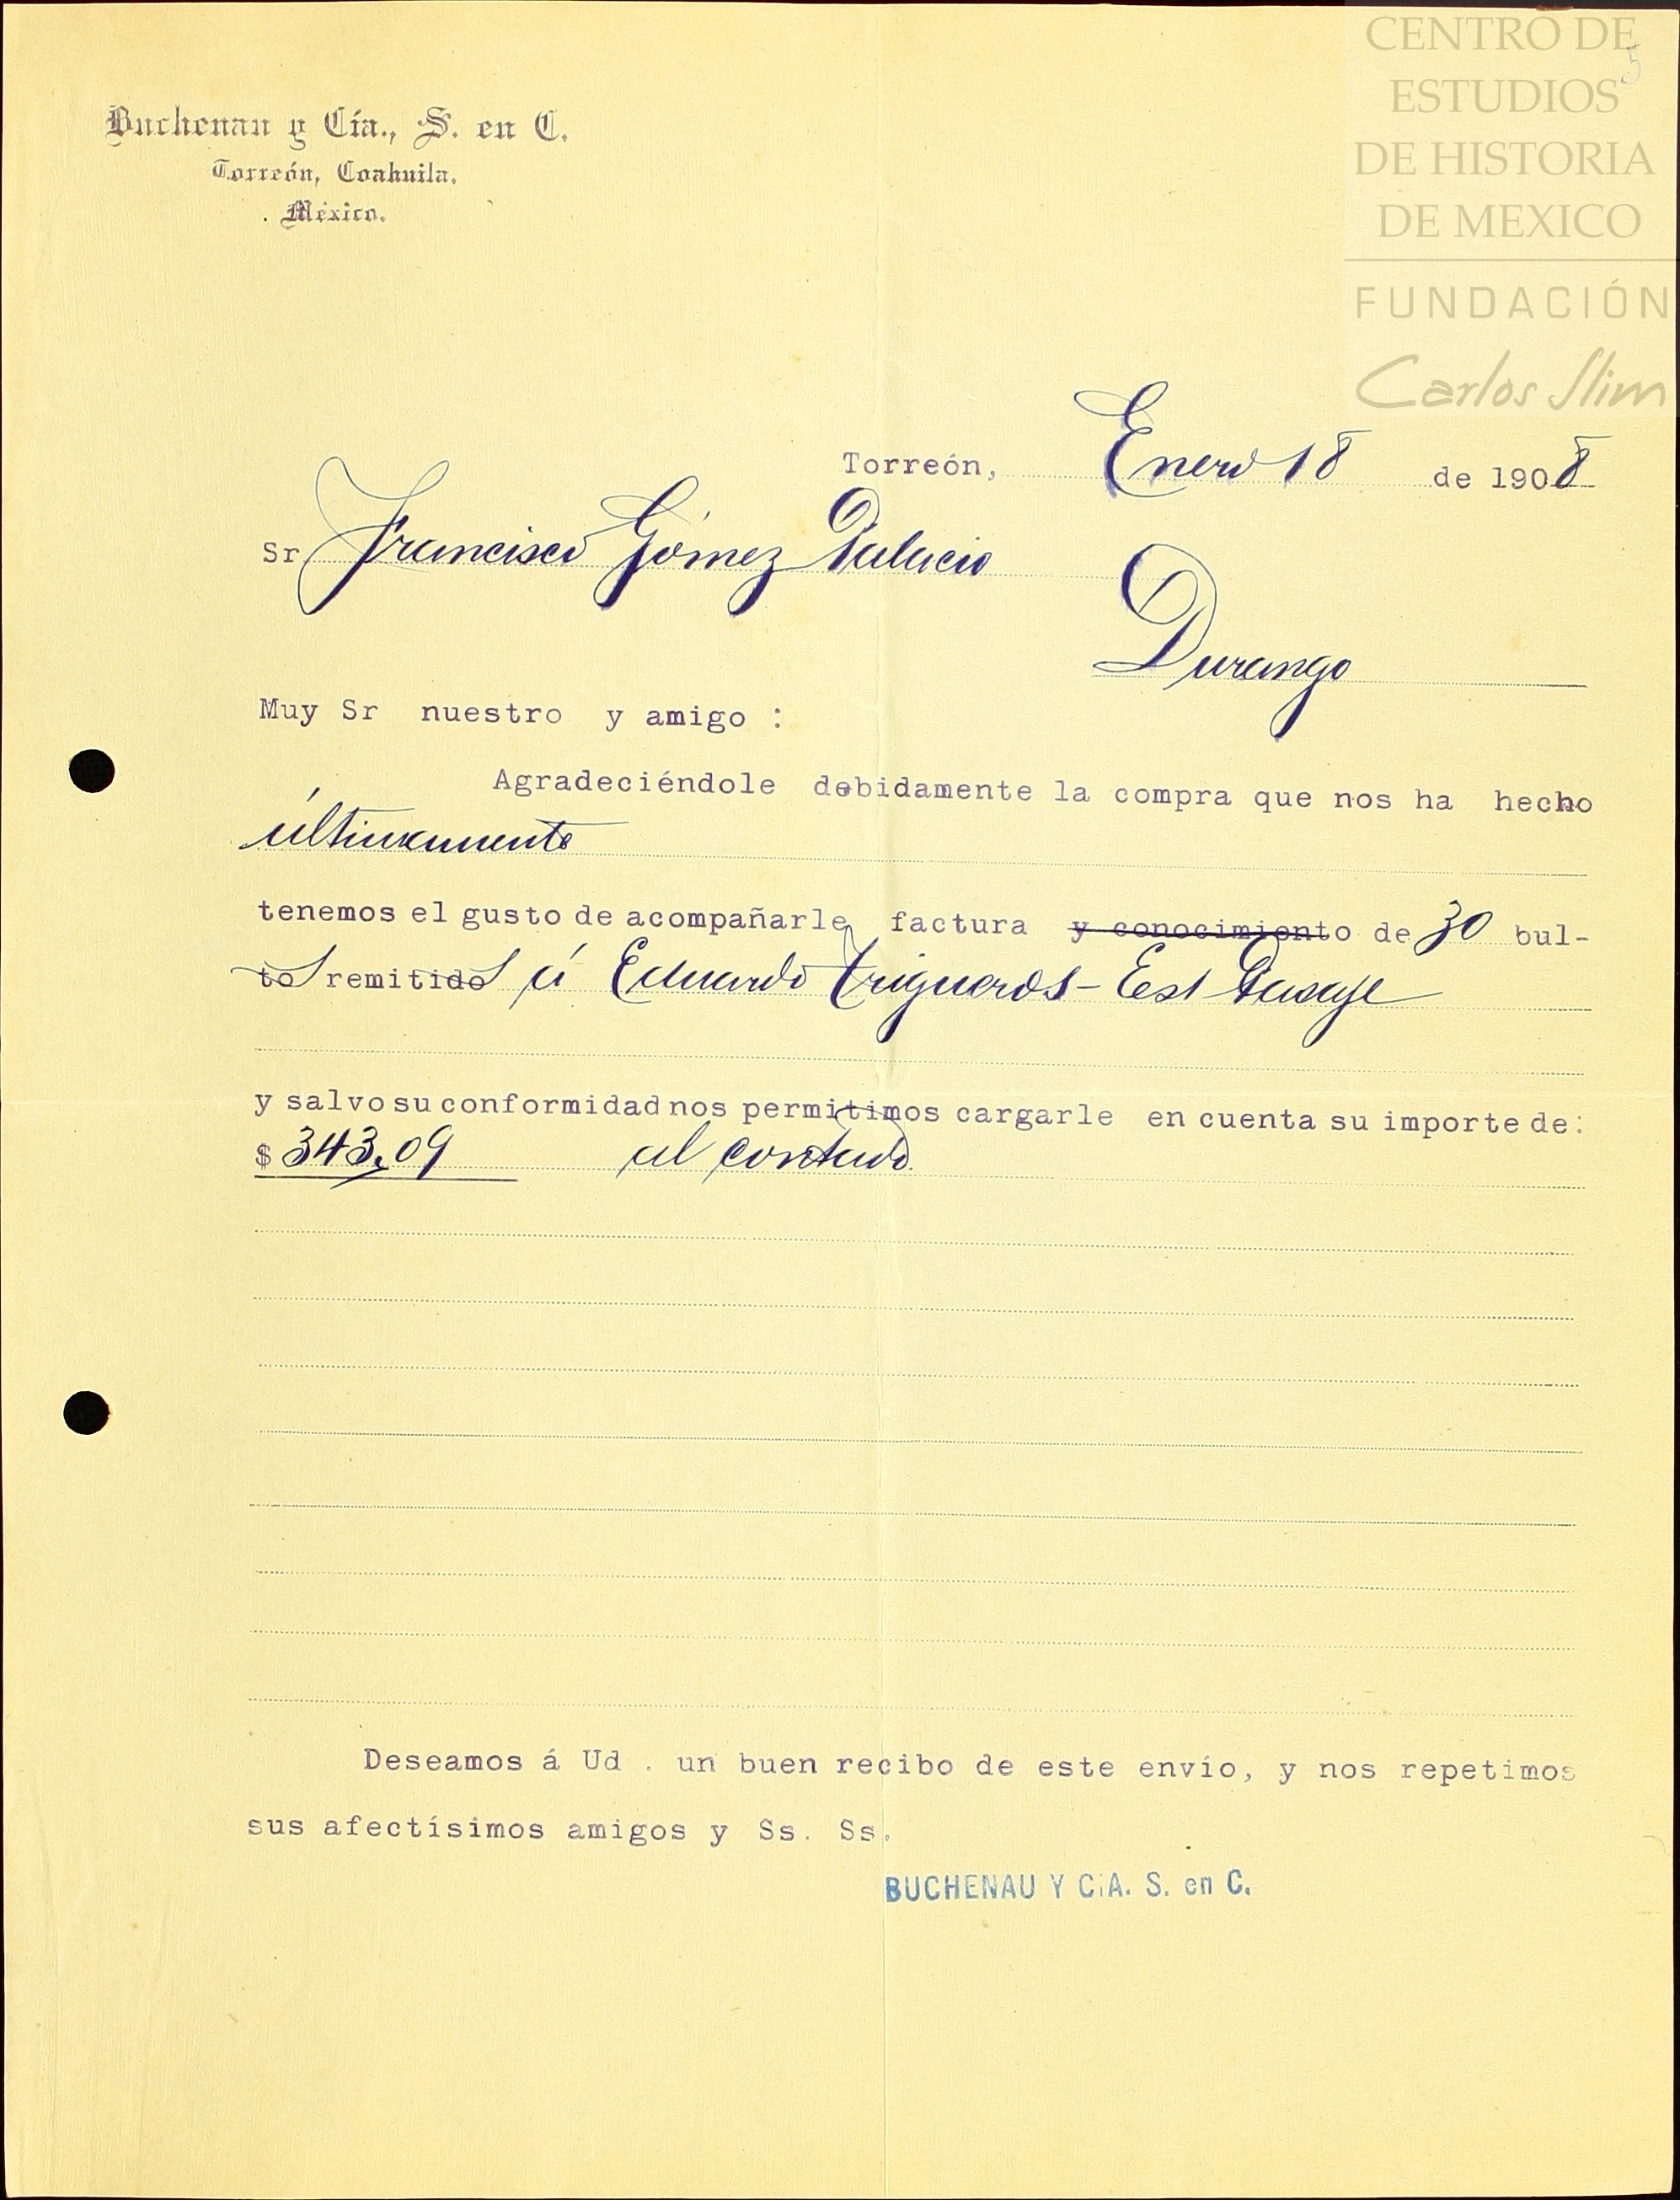 CENTRO DE
ESTUDIOS
DE HISTORIA
DE MEXICO
FUNDACIÓN
Carlos Slim
5
Buchenau y Cía., S. en C.
Torreón, Coahuila.
México.
Torreón, Enero 18 de 1908
Sr Francisco Gómez Palacio
Durango
Muy Sr nuestro y amigo :
Agradeciéndole debidamente la compra que nos ha hecho
últimamente
tenemos el gusto de acompañarle factura y conocimiento de 30 bul-
tos remitidos á Eduardo Trigueros - Est Pasaje
y salvo su conformidad nos permitimos cargarle en cuenta su importe de:
$ 343,09 al contado.
Deseamos á Ud . un buen recibo de este envío, y nos repetimos
sus afectísimos amigos y Ss. Ss.
BUCHENAU Y CÍA. S. en C.